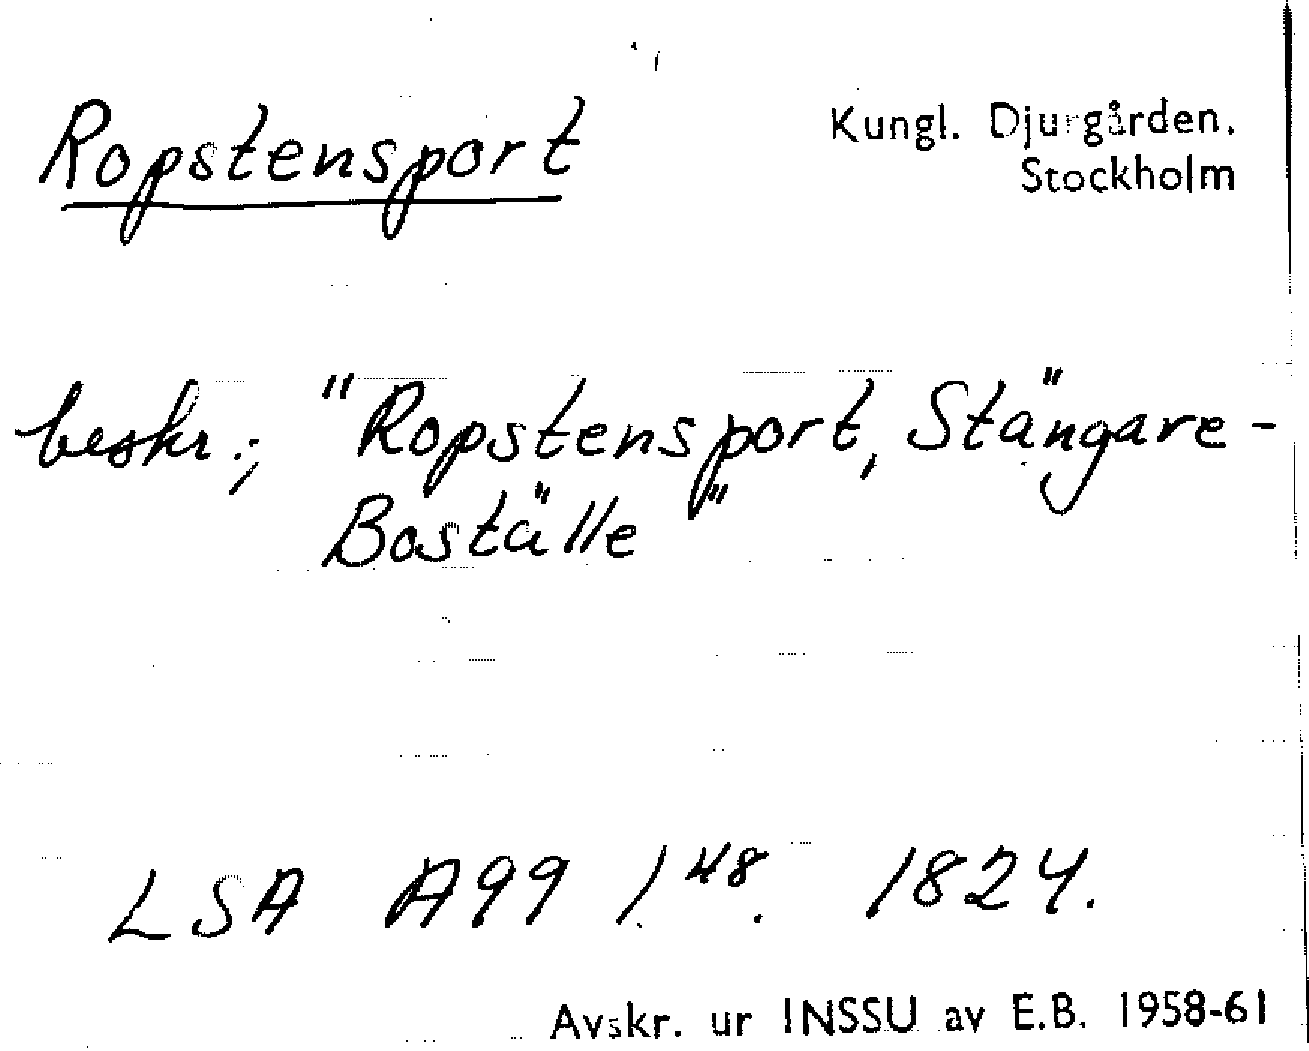 Ropstensport
Kungl. Djurgården.
Stockholm
beskr.; "Ropstensport, Stängare-
Boställe"
LSA A99 1.48. 1824.
Avskr. ur INSSU av E.B. 1958-61